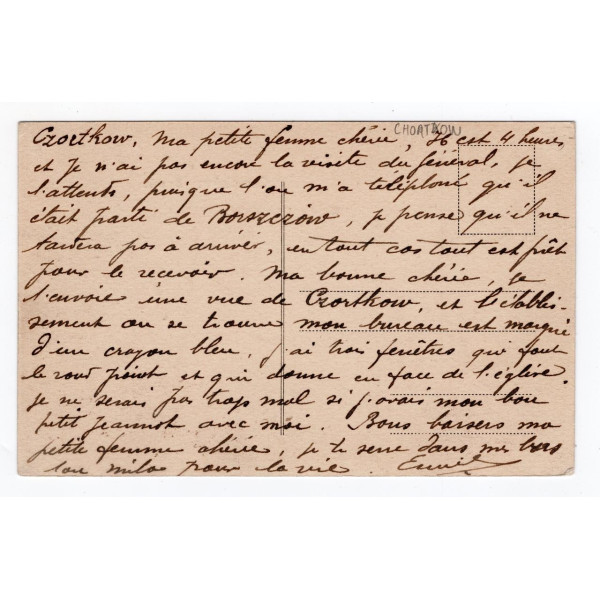 CHORTKOW
Czortkow, ma petite femme chérie, Il est 4 heures
et je n'ai pas encore la visite du Général, je
l'attends, puisque l'on m'a téléphoné qu'il
était parti de Borszczów, je pense qu'il ne
tardera pas à arriver, en tout cas tout est prêt
pour le recevoir. Ma bonne chérie, je
t'envoie une vue de Czortkow, et l'établis-
sement ou se trouve mon bureau est marqué
d'un crayon bleu, j'ai trois fenêtres qui font
le rond point et qui donne en face de l'église.
je ne serais pas trop mal si j'avais mon bon
petit Jeannot avec moi. Bons baisers ma
petite femme chérie, je te serre dans mes bras
ton pour la vie. Emile